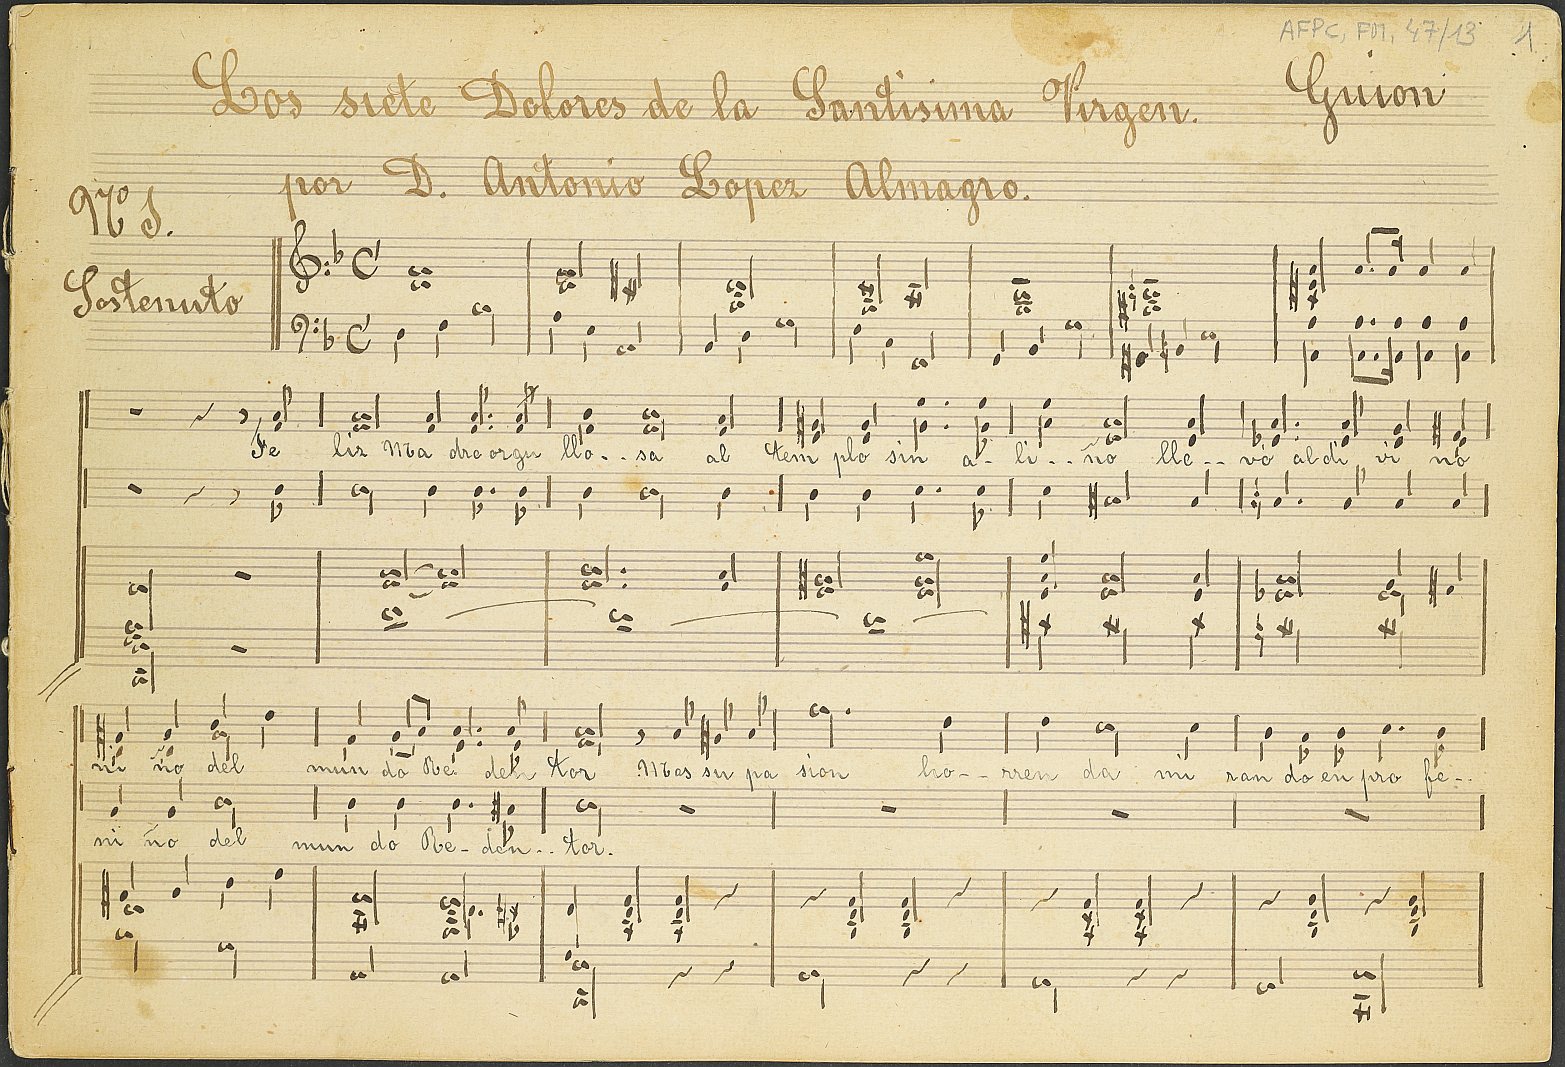 AFPC, FM, 47/13 1
Los siete Dolores de la Santisima Virgen. Guion
por D. Antonio Lopez Almagro.
Nº 1.
Sostenuto
Fe liz Ma dre orgu llo.. sa al tem plo sin a- li.. ño lle-- vó al di vi no
ni ño del mun do Re den tor Mas su pa sion ho-- rren da mi ran do en pro fe-..
ni ño del mun do Re- den.. tor.